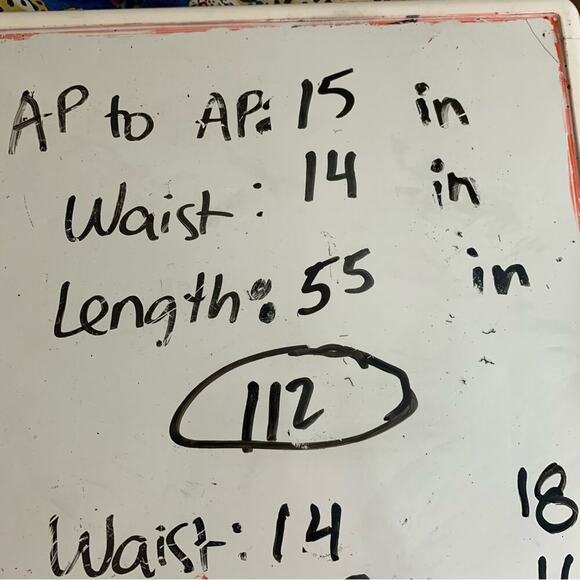 AP to AP: 15 in
Waist: 14 in
Length: 55 in
112
Waist: 14 18